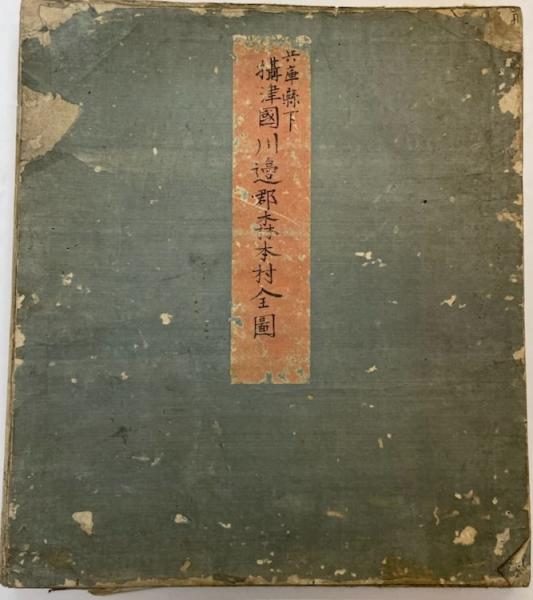 兵庫縣下
攝津國川邉郡森本村全圖